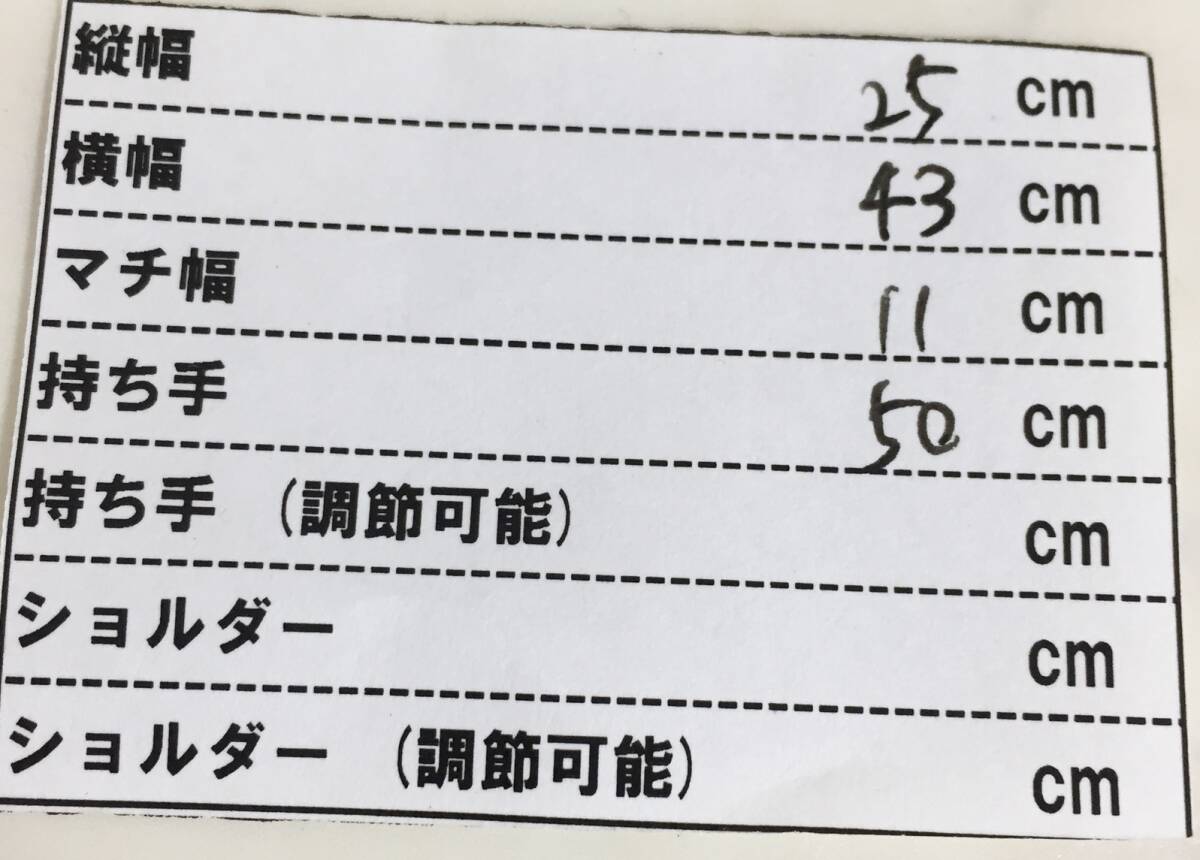 縦幅 25 cm
横幅 43 cm
マチ幅 11 cm
持ち手 50 cm
持ち手 (調節可能) cm
ショルダー cm
ショルダー (調節可能) cm